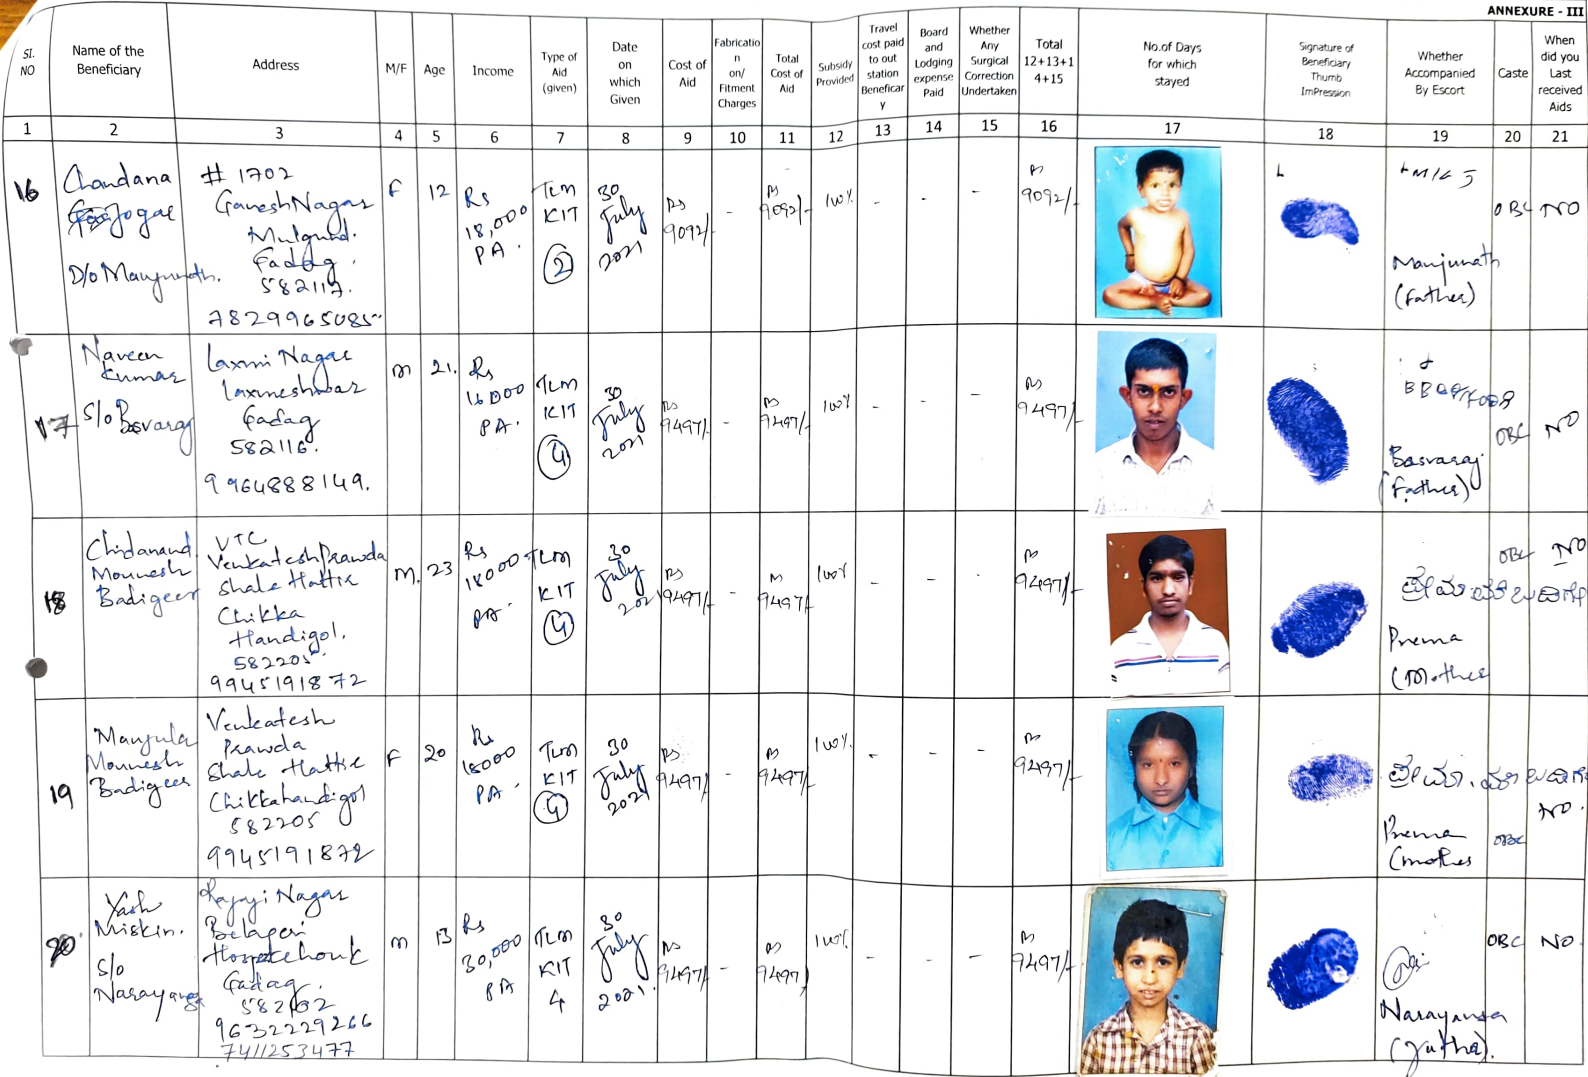 ANNEXURE - III
Sl. NO
Name of the Beneficiary
Address
M/F
Age
Income
Type of Aid (given)
Date on which Given
Cost of Aid
Fabrication/ Fitment Charges
Total Cost of Aid
Subsidy Provided
Travel cost paid to out station Beneficary
Board and Lodging expense Paid
Whether Any Surgical Correction Undertaken
Total 12+13+14+15
No.of Days for which stayed
Signature of Beneficiary Thumb ImPression
Whether Accompanied By Escort
Caste
When did you Last received Aids
1 2 3 4 5 6 7 8 9 10 11 12 13 14 15 16 17 18 19 20 21
16
Chandana
Jogae
D/o Manjunath.
# 1702
Ganesh Nagar
Mulgund.
Gadag.
582117.
7829965085
F
12
Rs
18,000
PA.
TLM
KIT
2
30
July
2021
Rs
9092/-
-
Rs
9092/-
100%
-
-
-
Rs
9092/-
Manjunath
(Father)
OBC
NO
17
Naveen
Kumar
S/o Basvaraj
Laxmi Nagar
Laxmeshwar
Gadag
582116.
9964888149.
M
21.
Rs
16000
PA.
TLM
KIT
4
30
July
2021
Rs
9497/-
-
Rs
9497/-
100%
-
-
-
Rs
9497/-
Basvaraj
(Father)
OBC
NO
18
Chidanand
Mounesh
Badigeer
VTC
Venkatesh Prawda
Shale Hattir
Chikka
Handigol.
582205
9945191872
M.
23
Rs
18000
PA.
TLM
KIT
4
30
July
2021
Rs
9497/-
-
Rs
9497/-
100%
-
-
-
Rs
9497/-
Prema
(Mother
OBC
NO
19
Manjula
Mounesh
Badigeer
Venkatesh
Prawda
Shale Hattir
Chikkahandigol
582205
9945191872
F
20
Rs
18000
PA.
TLM
KIT
4
30
July
2021
Rs
9497/-
-
Rs
9497/-
100%
-
-
-
Rs
9497/-
Prema
(mother
OBC
NO.
20
Yash
Miskin.
S/o
Narayansa
Rajaji Nagar
Betageri
Gadag.
582102
9632229266
7411253477
M
13
Rs
30,000
PA
TLM
KIT
4
30
July
2021.
Rs
9497/-
-
Rs
9497/
100%
-
-
-
Rs
9497/-
Narayansa
OBC
NO